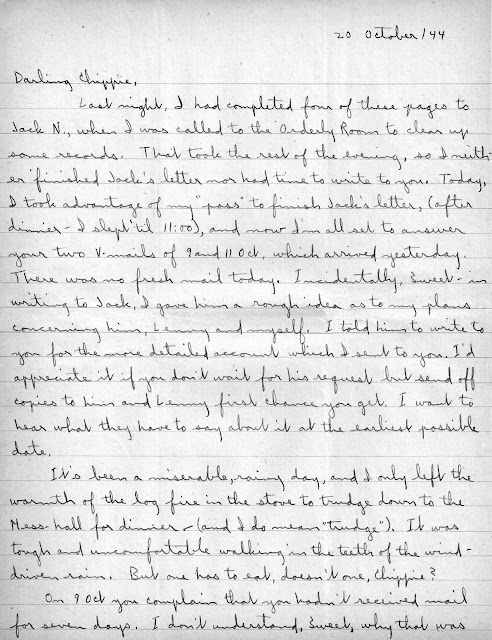 20 October/44
Darling Chippie,
Last night, I had completed four of these pages to
Jack N., when I was called to the Orderly Room to clear up
some records. That took the rest of the evening, so I neith-
er finished Jack's letter nor had time to write to you. Today,
I took advantage of my "pass" to finish Jack's letter, (after
dinner - I slept 'til 11:00), and now I'm all set to answer
your two V-mails of 9 and 11 Oct, which arrived yesterday.
There was no fresh mail today. Incidentally, Sweet - in
writing to Jack, I gave him a rough idea as to my plans
concerning him, Lenny and myself. I told him to write to
you for the more detailed account which I sent to you. I'd
appreciate it if you don't wait for his request but send off
copies to him and Lenny first chance you get. I want to
hear what they have to say about it at the earliest possible
date.
It's been a miserable, rainy day, and I only left the
warmth of the log fire in the stove to trudge down to the
Mess-hall for dinner - (and I do mean "trudge"). It was
tough and uncomfortable walking in the teeth of the wind-
driven rain. But one has to eat, doesn't one, Chippie?
On 9 Oct you complain that you hadn't received mail
for seven days. I don't understand, Sweet, why that was